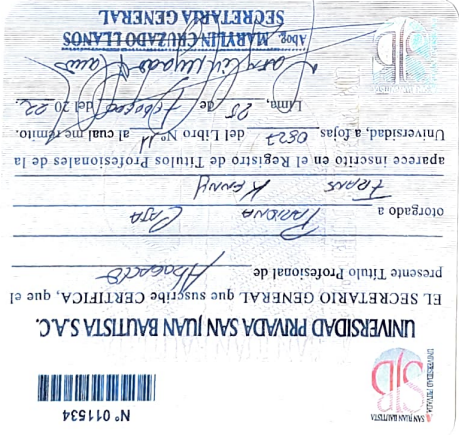 N° 011534
SAN JUAN BAUTISTA
UNIVERSIDAD PRIVADA
SJB
UNIVERSIDAD PRIVADA SAN JUAN BAUTISTA S.A.C.
EL SECRETARIO GENERAL que suscribe CERTIFICA, que el
presente Título Profesional de Abogado
otorgado a Pariona Ccaja
Frans Kenny
aparece inscrito en el Registro de Títulos Profesionales de la
Universidad, a fojas 0827 del Libro N° 11 al cual me remito.
Lima, 25 de Febrero del 2022.
Abog. MARYLIN CRUZADO LLANOS
SECRETARIA GENERAL